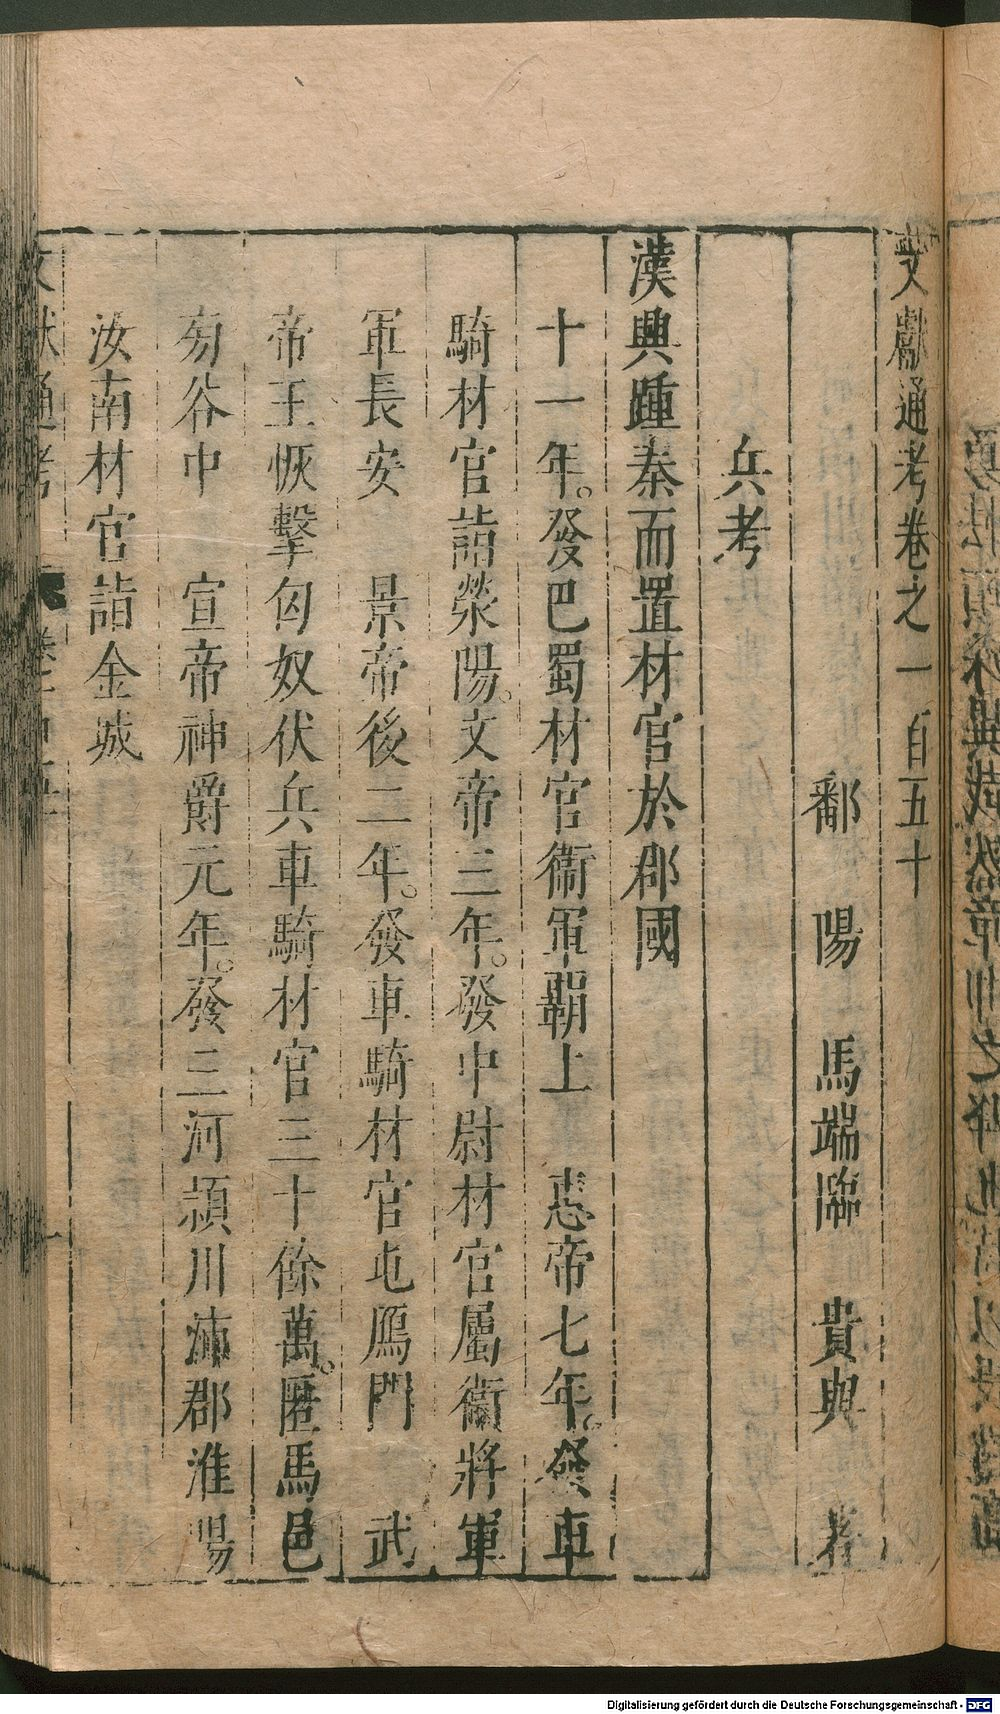 文獻通考卷之一百五十
鄱陽 馬端臨 貴與 著
兵考
漢興踵秦而置材官於郡國
十一年。發巴蜀材官衞軍霸上 惠帝七年。發車
騎材官詣滎陽。文帝三年。發中尉材官屬衞將軍
軍長安 景帝後二年。發車騎材官屯鴈門 武
帝王恢擊匈奴伏兵車騎材官三十餘萬。匿馬邑
旁谷中 宣帝神爵元年。發三河潁川沛郡淮陽
汝南材官詣金城
文獻通考
Digitalisierung gefördert durch die Deutsche Forschungsgemeinschaft - DFG